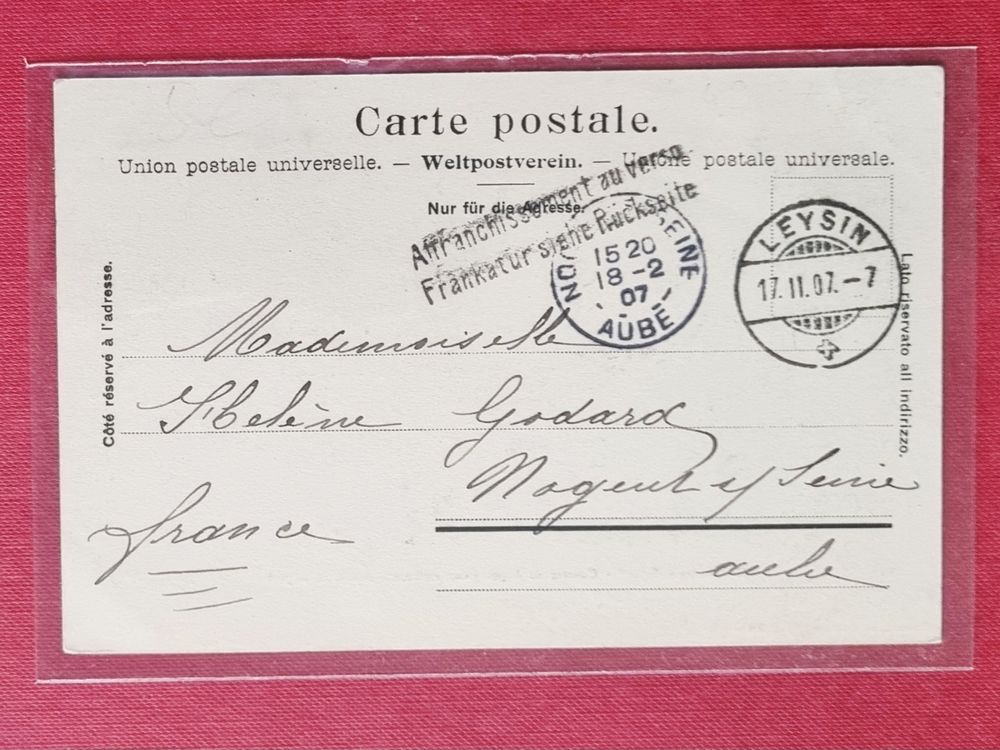 Carte postale.
Union postale universelle. — Weltpostverein. — Unione postale universale.
Nur für die Adresse.
Affranchissement au verso
Frankatur siehe Rückseite
EINE
15 20
18 -2
07
AUBE
LEYSIN
17.II.07.-7
Côté réservé à l'adresse.
Lato riservato all indirizzo.
Mademoiselle
Helène Godard
Nogent s/ Seine
france
aube